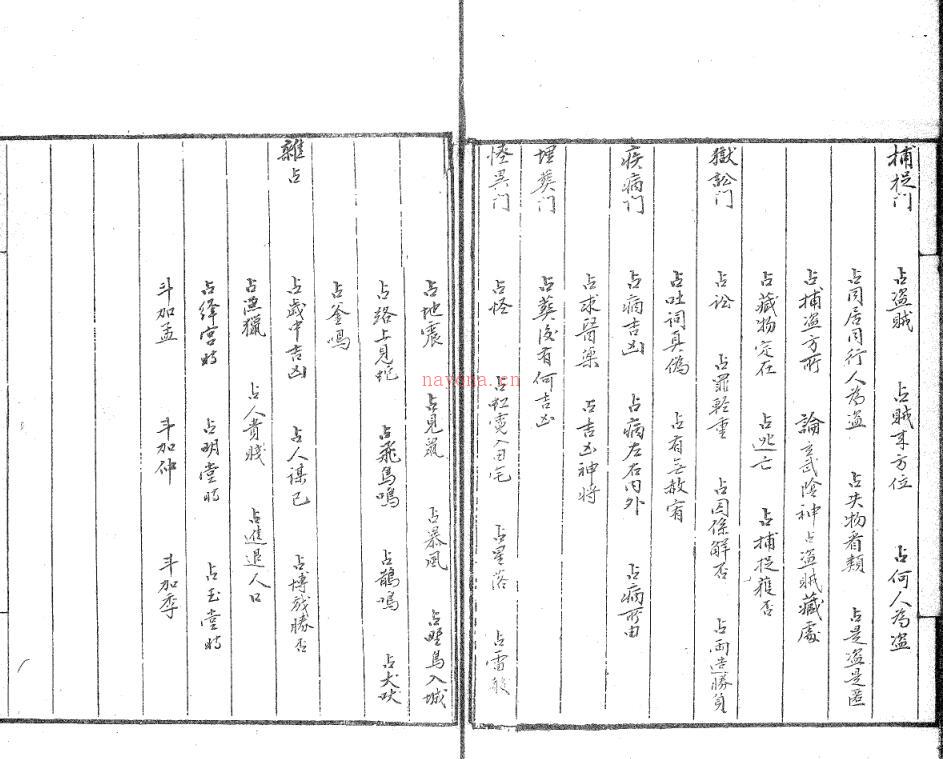 捕捉门 占盗贼 占贼来方位 占何人为盗
占同居同行人為盗 占失物看類 占是盗是匿
占捕盗方所 論玄武陰神占盗贼藏處
占藏物定在 占逃亡 占捕捉獲否
獄訟门 占訟 占罪輕重 占囚係解否 占両造勝負
占吐词真偽 占有無赦宥
疾病门 占病吉凶 占病左右内外 占病所由
占求醫藥 占吉凶神将
埋葬门 占葬後有何吉凶
怪異门 占怪 占虹霓入田宅 占星落 占雷
占地震 占見鼠 占暴风 占野鳥入城
占路上見蛇 占飛鳥鳴 占鵲鳴 占犬吠
占釜鳴
雜占 占歲中吉凶 占人謀己 占博戏勝否
占漁獵 占人貴賤 占進退人口
占绛宫時 占明堂時 占玉堂時
斗加孟 斗加仲 斗加季
nayona.cn